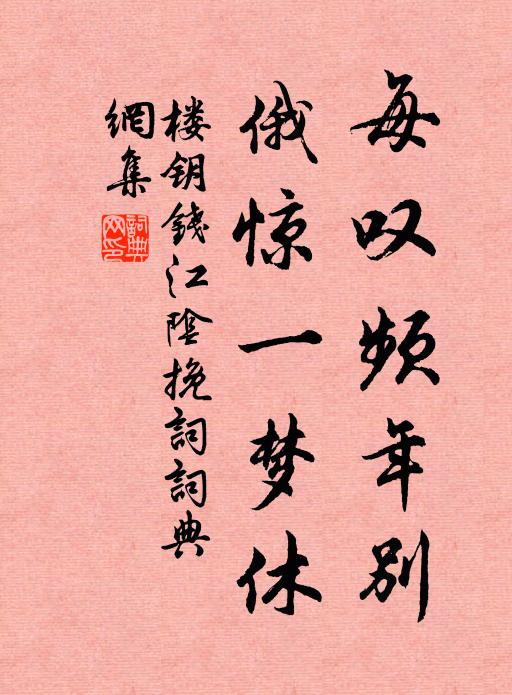 每叹频年别
俄惊一梦休
楼钥錢江陰挽詞詞典
網集
詞典网印